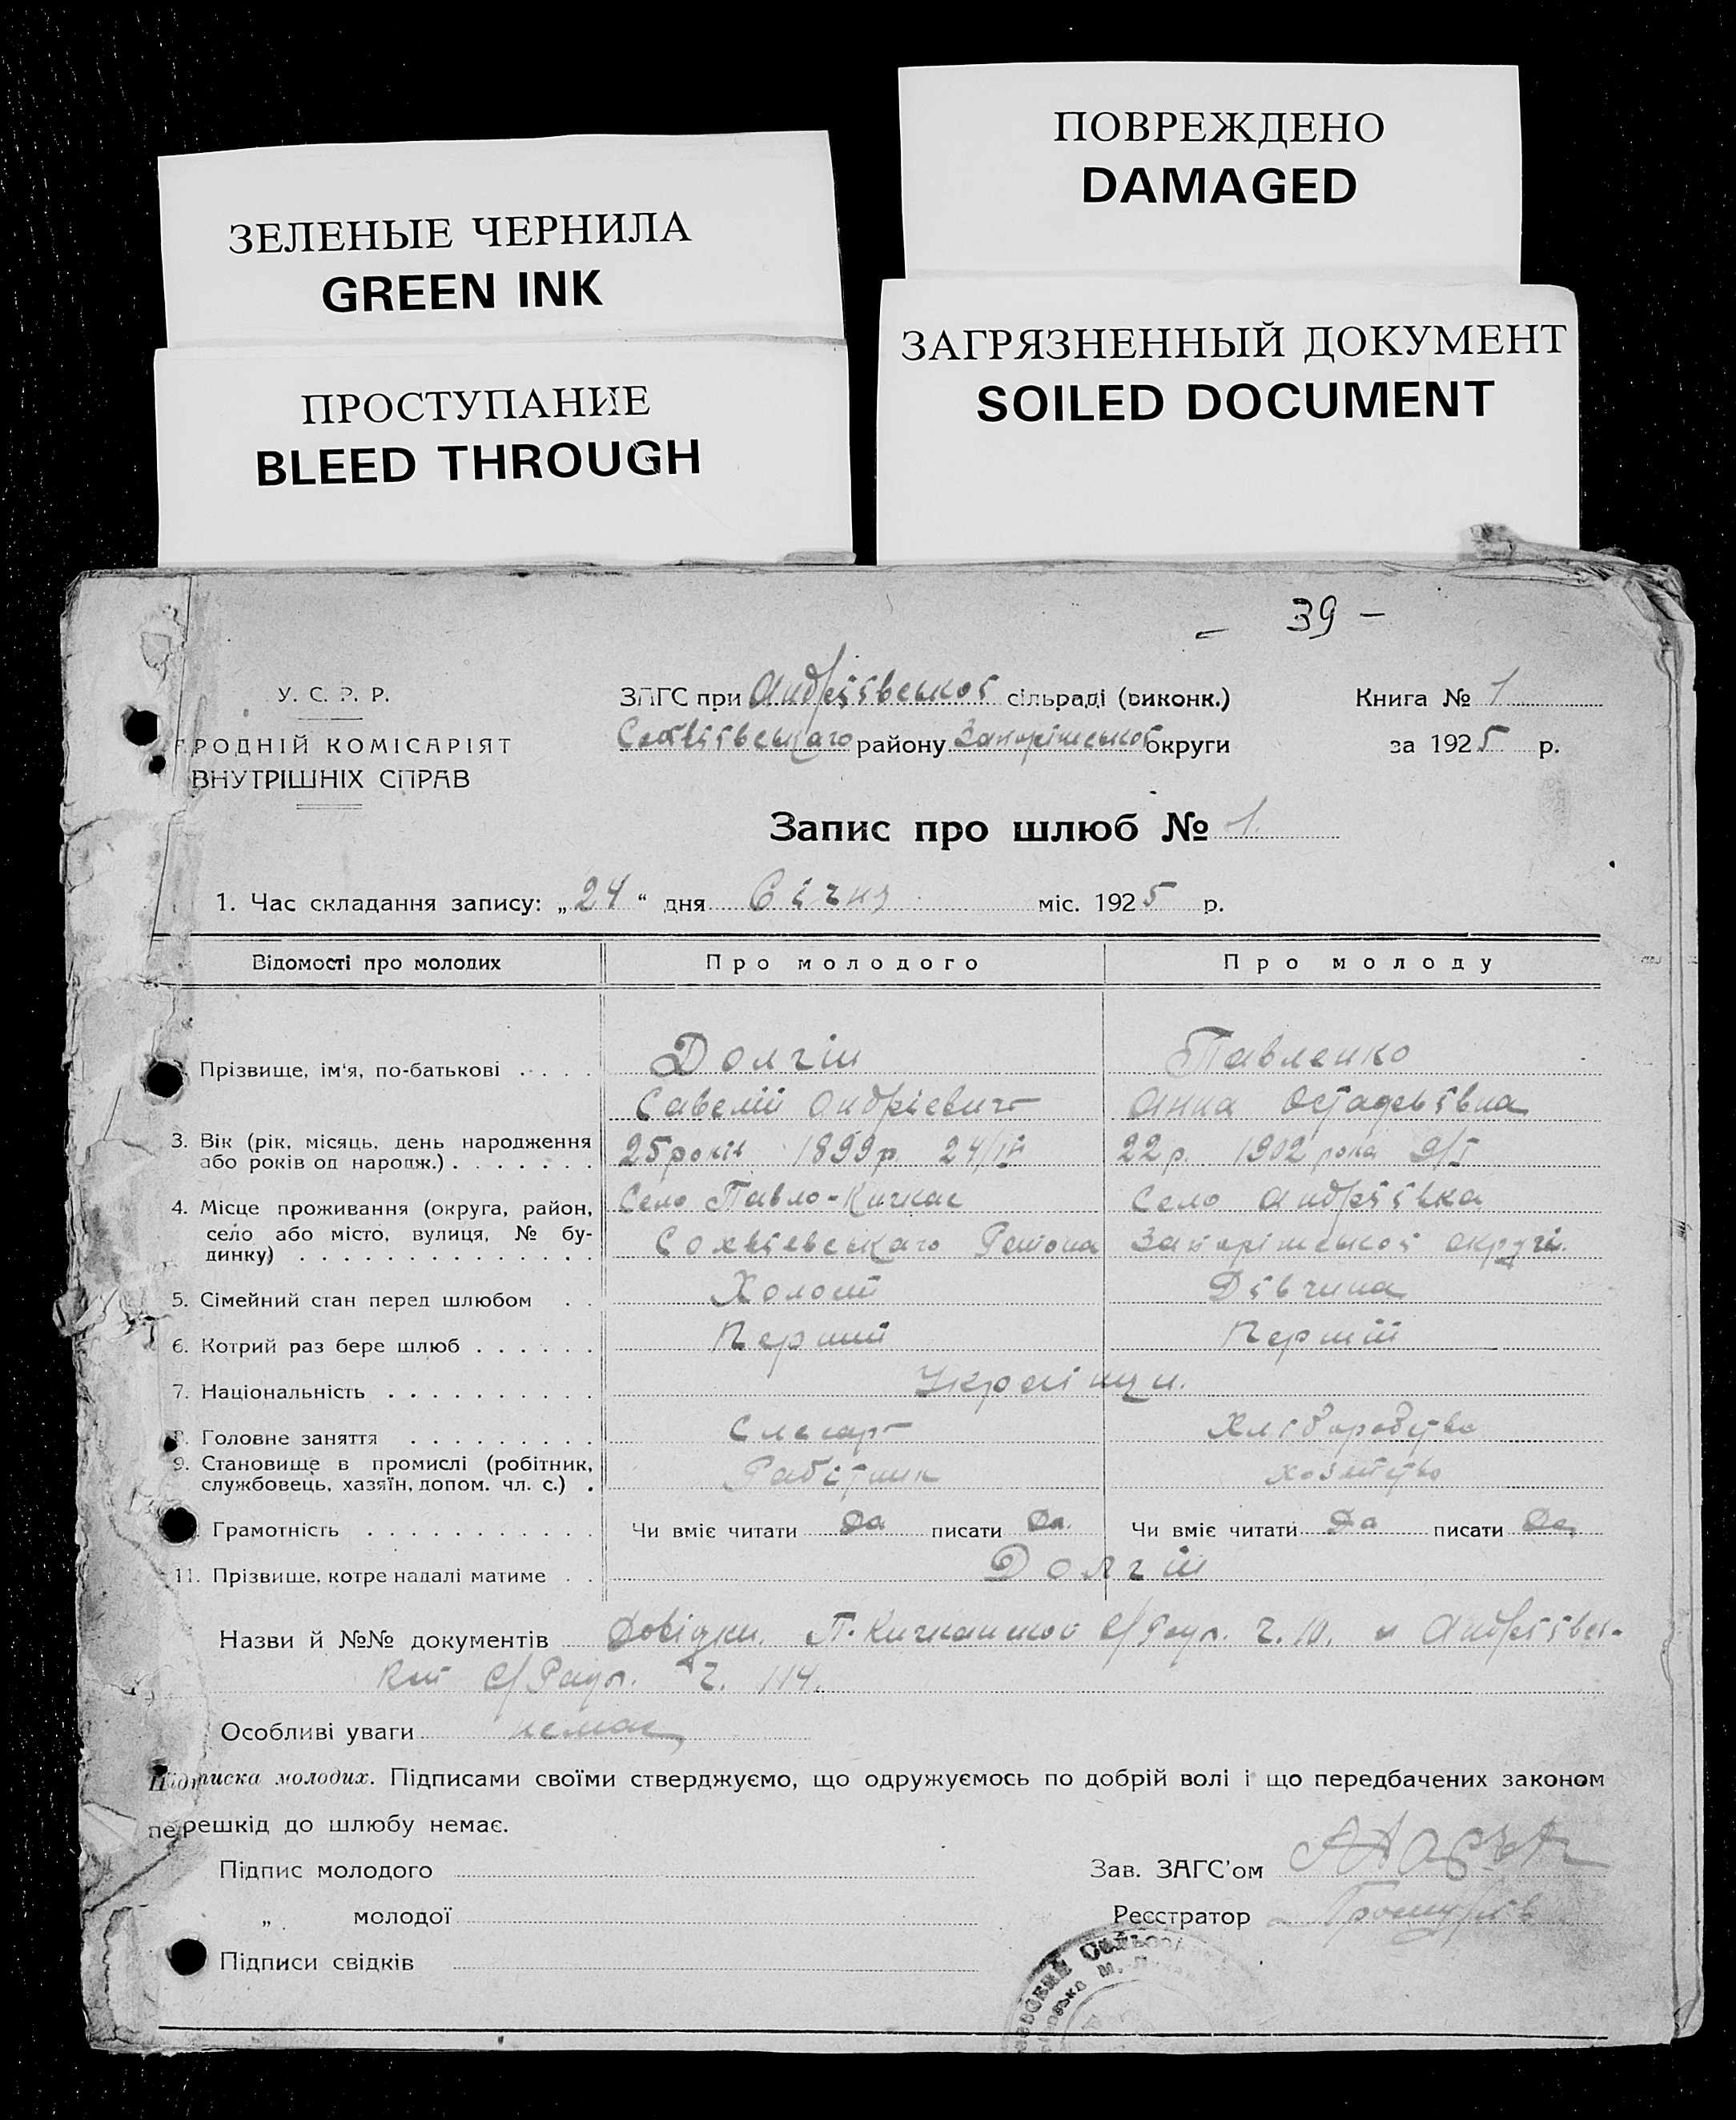 ПОВРЕЖДЕНО
DAMAGED
ЗЕЛЕНЫЕ ЧЕРНИЛА
GREEN INK
ЗАГРЯЗНЕННЫЙ ДОКУМЕНТ
SOILED DOCUMENT
ПРОСТУПАНИЕ
BLEED THROUGH
– 39 –
У. С. Р. Р.
РОДНІЙ КОМІСАРІЯТ
ВНУТРІШНІХ СПРАВ
ЗАГС при Андріївськоі сільраді (виконк.)
району Запоріжськоі округи
Книга № 1
за 1925 р.
Запис про шлюб № 1.
1. Час складання запису: „24“ дня Січня міс. 1925 р.
Відомості про молодих Про молодого Про молоду
Прізвище, ім'я, по-батькові . . . . Долгій Павленко
Савелій Андріевич Анна Остапевівна
3. Вік (рік, місяць, день народження або років од народж.) . . . . . . . 25 років 1899 р. 22 р. 1902 рока 9/I
4. Місце проживання (округа, район, село або місто, вулиця, № будинку) . . . . . . . . . . . . . . Село Павло-Кичкас Село Андріівка
Района Запоріжськоі округи.
5. Сімейний стан перед шлюбом . . Холост Дівчина
6. Котрий раз бере шлюб . . . . . . Перший Перший
7. Національність . . . . . . . . . . Украінци.
8. Головне заняття . . . . . . . . . Слесарь Хліборобство
9. Становище в промислі (робітник, службовець, хазяїн, допом. чл. с.) . Рабітник
Грамотність . . . . . . . . . . . Чи вміє читати Да писати Да. Чи вміє читати Да писати Да
11. Прізвище, котре надалі матиме . . Долгій
Назви й №№ документів Довідки. П. Кичкаськоі с/Ради. ч. 10. и Андріівсь-
коі с/Ради. ч. 114.
Особливі уваги немає
Підписка молодих. Підписами своїми стверджуємо, що одружуємось по добрій волі і що передбачених законом
перешкід до шлюбу немає.
Підпис молодого
Зав. ЗАГС'ом
„ молодої
Реєстратор
Підписи свідків